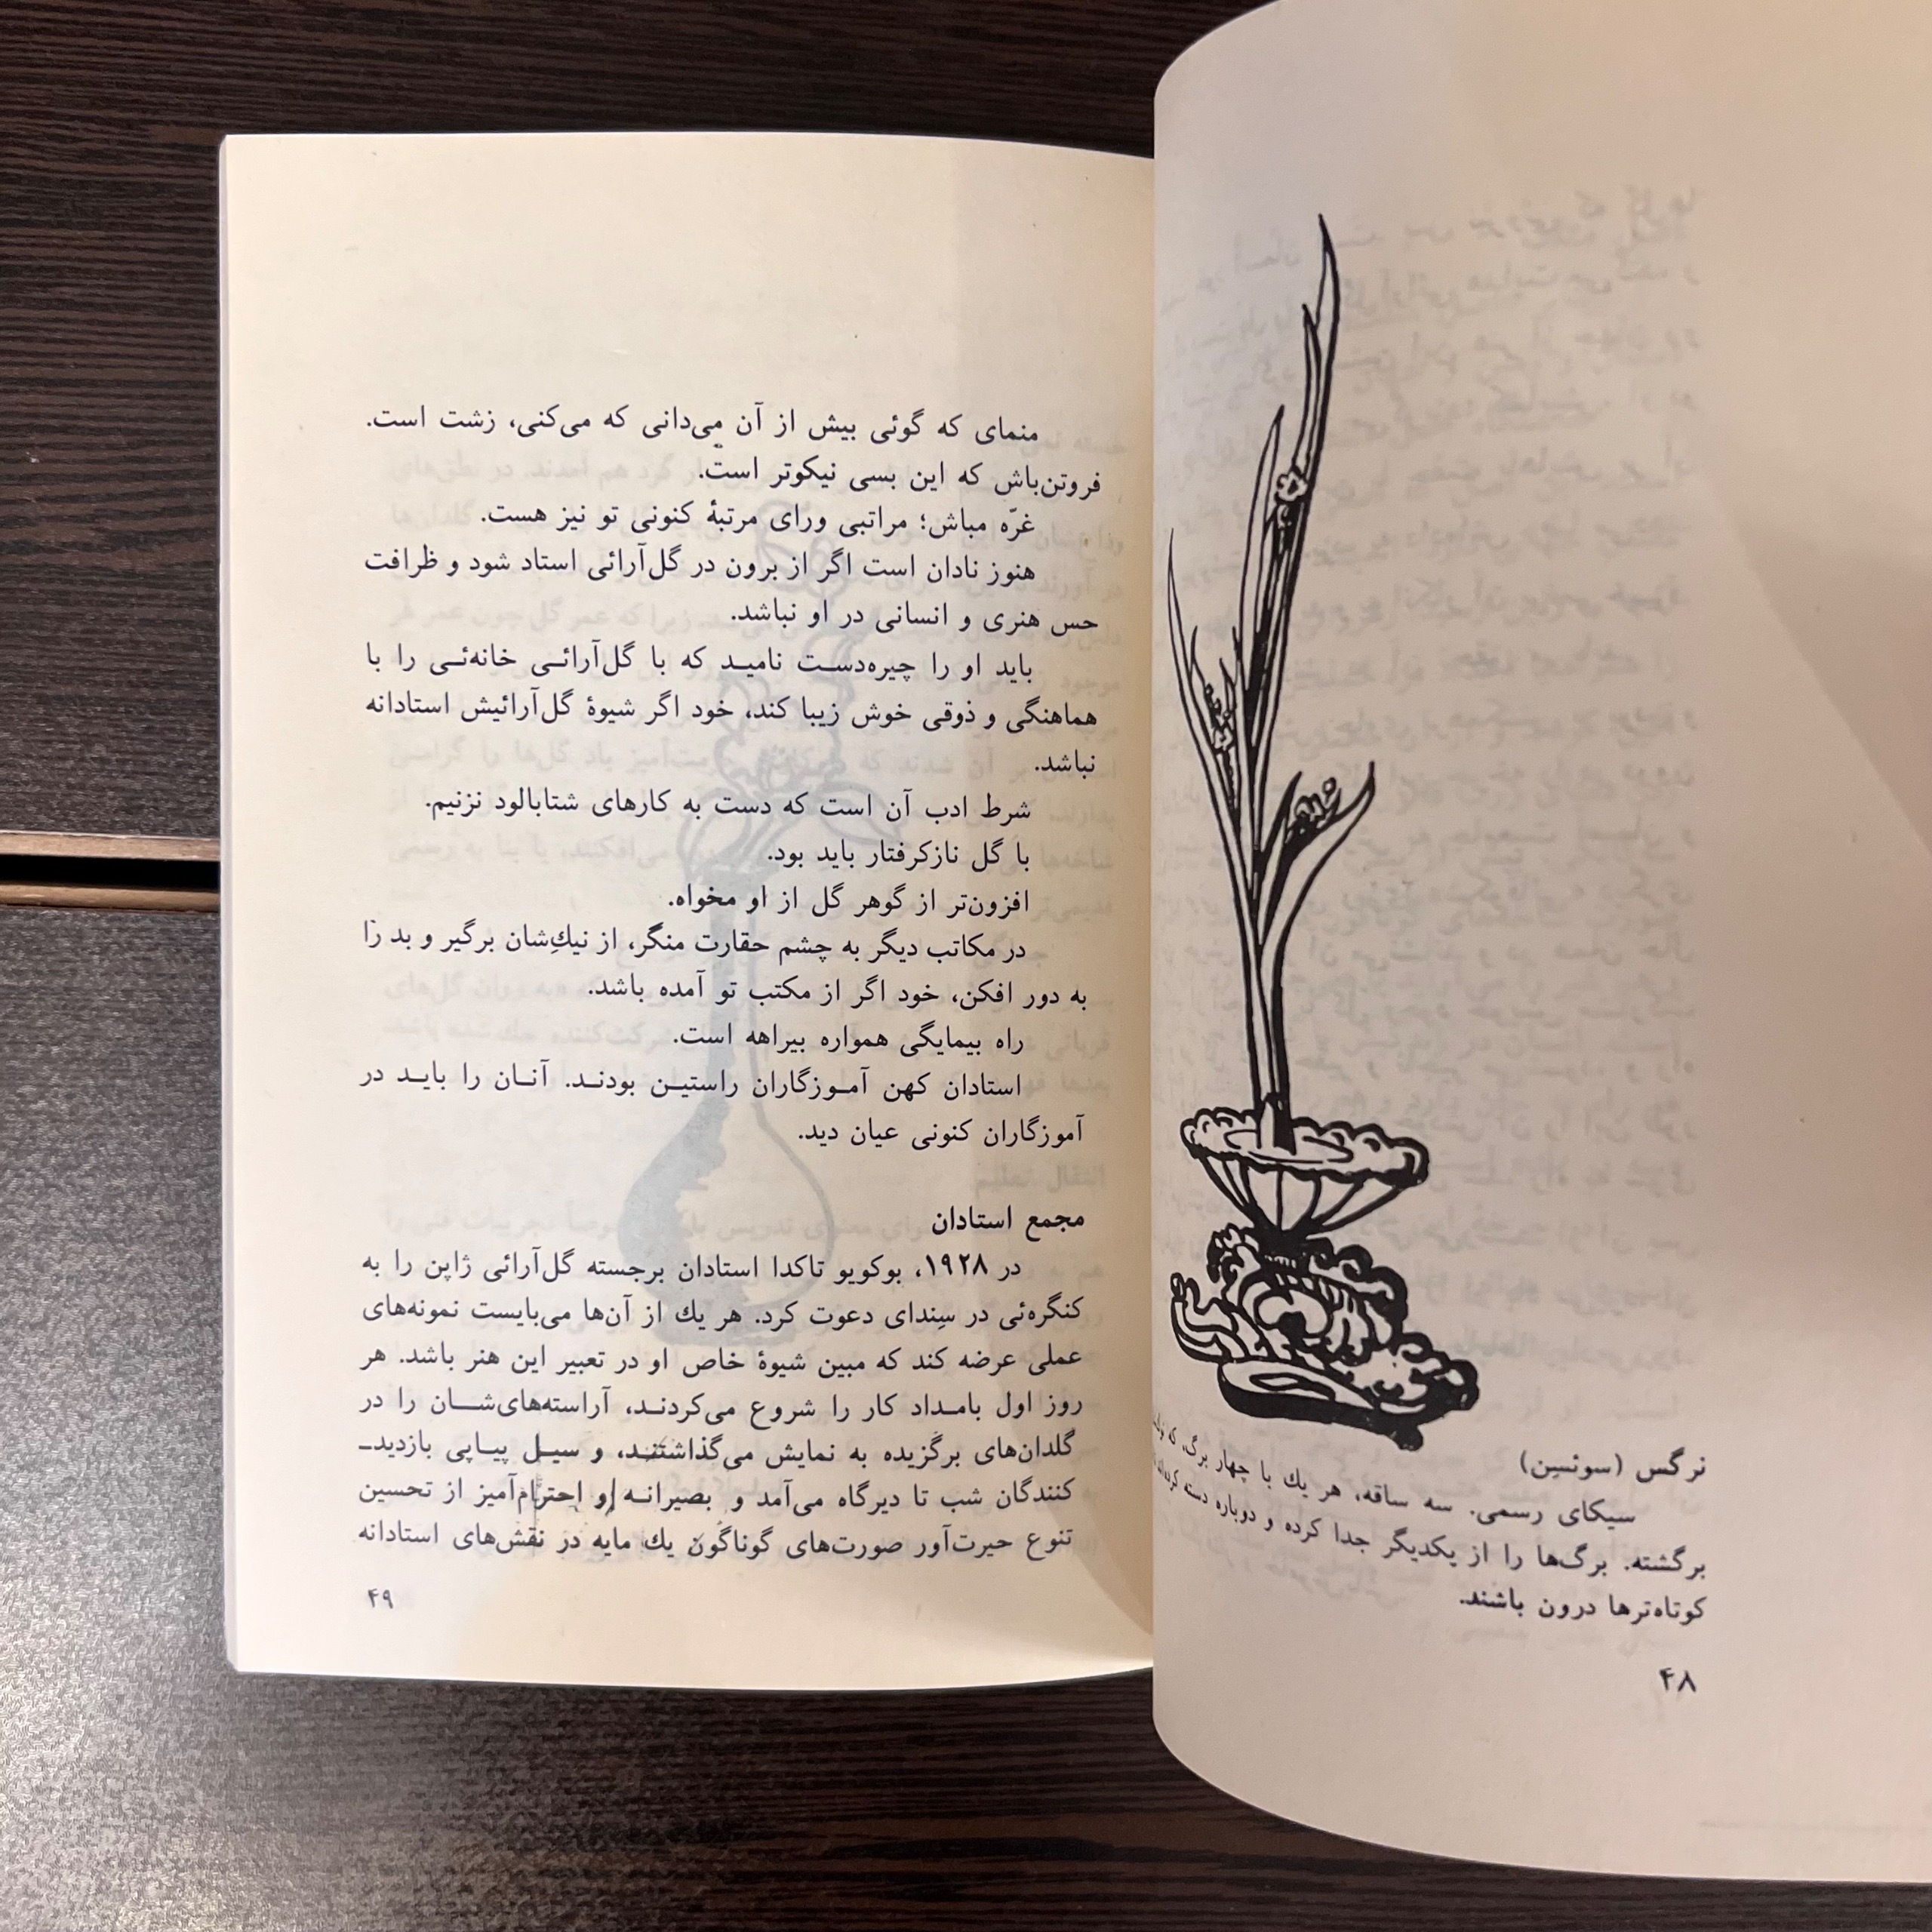 نرگس (سوئسِن)
سیکای رسمی. سه ساقه، هر یك با چهار برگ، که
برگشته. برگ‌ها را از یکدیگر جدا کرده و دوباره دسته کرده‌اند
کوتاه‌ترها درون باشند.
۴۸
منمای که گوئی بیش از آن می‌دانی که می‌کنی، زشت است.
فروتن‌باش که این بسی نیکوتر است.
غرّه مباش؛ مراتبی ورای مرتبۀ کنونی تو نیز هست.
هنوز نادان است اگر از برون در گل‌آرائی استاد شود و ظرافت
حس هنری و انسانی در او نباشد.
باید او را چیره‌دست نامید که با گل‌آرائی خانه‌ئی را با
هماهنگی و ذوقی خوش زیبا کند، خود اگر شیوۀ گل‌آرائیش استادانه
نباشد.
شرط ادب آن است که دست به کارهای شتابالود نزنیم.
با گل نازکرفتار باید بود.
افزون‌تر از گوهر گل از او مخواه.
در مکاتب دیگر به چشم حقارت منگر، از نیكِ‌شان برگیر و بد را
به دور افکن، خود اگر از مکتب تو آمده باشد.
راه بیمایگی همواره بیراهه است.
استادان کهن آموزگاران راستین بودند. آنان را باید در
آموزگاران کنونی عیان دید.
مجمع استادان
در ۱۹۲۸، بوکویو تاکدا استادان برجسته گل‌آرائی ژاپن را به
کنگره‌ئی در سِندای دعوت کرد. هر یك از آن‌ها می‌بایست نمونه‌های
عملی عرضه کند که مبین شیوۀ خاص او در تعبیر این هنر باشد. هر
روز اول بامداد کار را شروع می‌کردند، آراسته‌های‌شان را در
گلدان‌های برگزیده به نمایش می‌گذاشتند، و سیل پیاپی بازدید-
کنندگان شب تا دیرگاه می‌آمد و بصیرانه و احترام‌آمیز از تحسین
تنوع حیرت‌آور صورت‌های گوناگون یك مایه در نقش‌های استادانه
۴۹